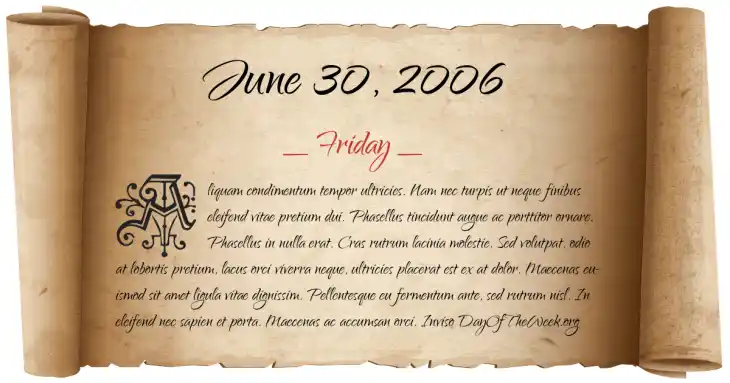 June 30, 2006
_ Friday _
Aliquam condimentum tempor ultricies. Nam nec turpis ut neque finibus
eleifend vitae pretium dui. Phasellus tincidunt augue ac porttitor ornare.
Phasellus in nulla erat. Cras rutrum lacinia molestie. Sed volutpat, odio
at lobortis pretium, lacus orci viverra neque, ultricies placerat est ex at dolor. Maecenas eu-
ismod sit amet ligula vitae dignissim. Pellentesque eu fermentum ante, sed rutrum nisl. In
eleifend nec sapien et porta. Maecenas ac accumsan orci. Invise DayOfTheWeek.org